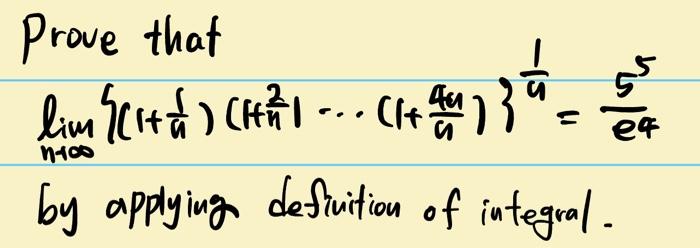 Prove that
lim n→∞ {(1+1/n)(1+2/n)···(1+4n/n)}^(1/n) = 5^5/e^4
by applying definition of integral.